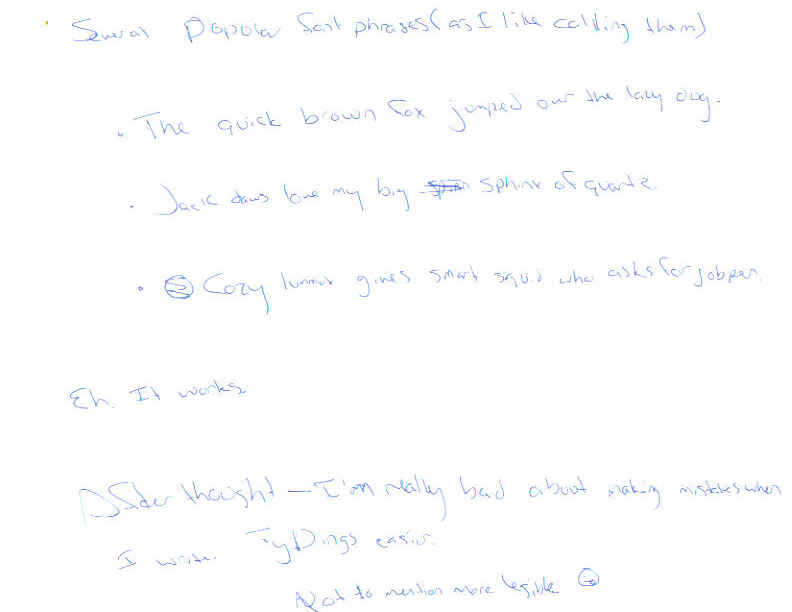 Several Popolar font phrases (as I like callding them)
The quick brown fox jumped over the lazy dog.
Jack daws love my big sphinx of quartz.
Cozy lummox gives smart squid who asks for job pen.
Eh. It works.
After thought — I'm really bad about making mistakes when
I write. TyPings easier.
Not to mention more legible